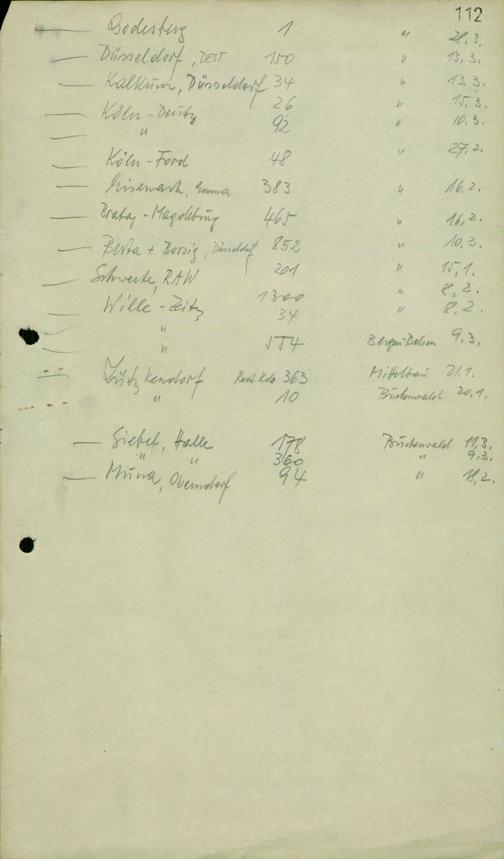 112
— Godesberg 1 " 28.3.
— Düsseldorf, DEST 150 " 13.3.
— Kalkum, Düsseldorf 34 " 13.3.
— Köln-Deutz 26 " 15.3.
— " 92 " 10.3.
— Köln-Ford 48 " 27.2.
— Eisenach, Emma 383 " 16.2.
— Brabag-Magdeburg 465 " 16.2.
— Berta + Borsig, Düsseldorf 852 " 10.3.
— Schwerte, RAW 201 " 15.1.
— Wille-Zeitz 1300 " 8.2.
— " 34 " 8.2.
— " 554 Bergen Belsen 9.3.
— Lützkendorf 363 Mittelbau 21.1.
" 10 Buchenwald 20.1.
— Siebel, Halle 178 Buchenwald 11.3.
" " 360 " 9.3.
— Muna, Oberndorf 94 " 18.2.